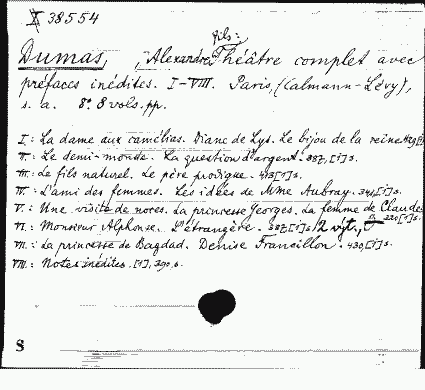 I 38554
fils:
Dumas, Alexandre Théâtre complet avec
préfaces inédites. I-VIII. Paris, (Calmann-Lévy),
s. a. 8° 8 vols. pp.
I.: La dame aux camélias. Diane de Lys. Le bijou de la reine.
II.: Le demi-monde. La question d'argent. 387, [1] s.
III.: Le fils naturel. Le père prodigue. 413 [1] s.
IV.: L'ami des femmes. Les idées de Mme Aubray. 341 [1] s.
V.: Une visite de noces. La princesse Georges. La femme de Claude
220 [1] s.
VI.: Monsieur Alphonse. L'étrangère. 387 [1] s. 2 výt.,
VII.: La princesse de Bagdad. Denise Francillon. 430 [1] s.
VIII.: Notes inédites. [1], 290, s.
S